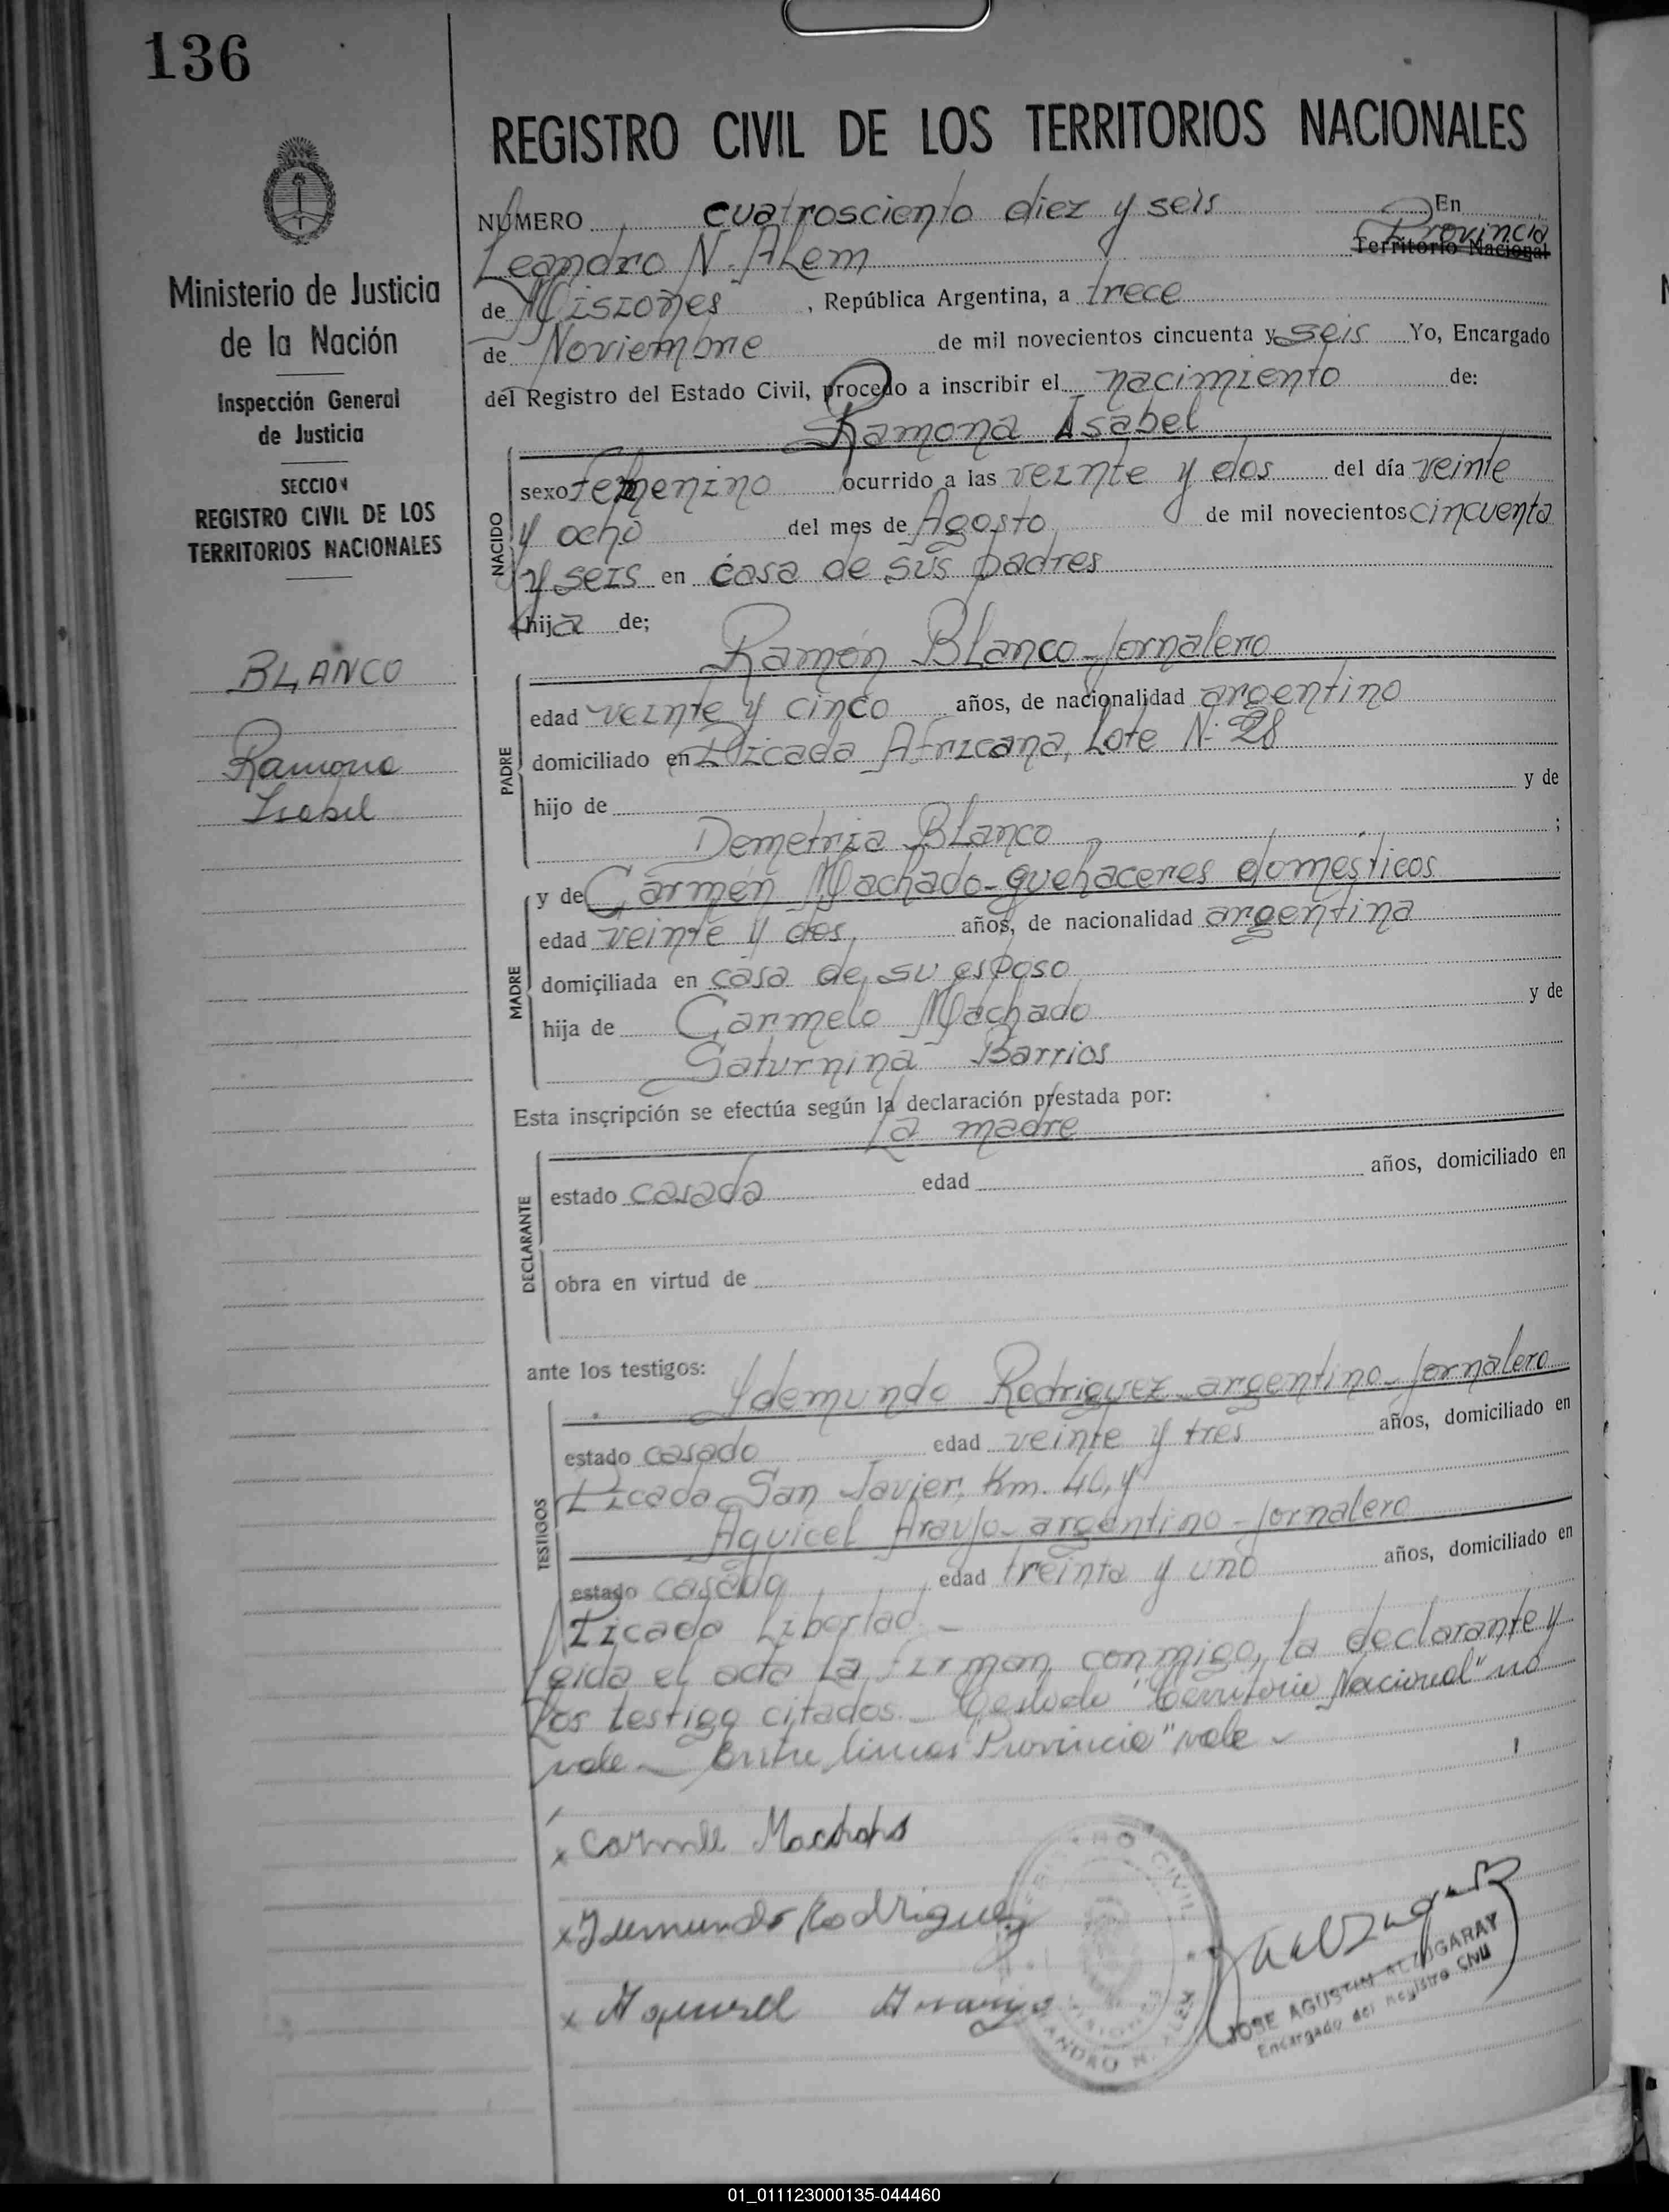 136
REGISTRO CIVIL DE LOS TERRITORIOS NACIONALES
Ministerio de Justicia
de la Nación
Inspección General
de Justicia
SECCION
REGISTRO CIVIL DE LOS
TERRITORIOS NACIONALES
BLANCO
Ramona
Isabel
NUMERO cuatrosciento diez y seis En
Leandro N. Alem Provincia Territorio Nacional
de Misiones, República Argentina, a trece
de Noviembre de mil novecientos cincuenta y seis Yo, Encargado
del Registro del Estado Civil, procedo a inscribir el nacimiento de:
Ramona Isabel
NACIDO
sexo femenino ocurrido a las veinte y dos del día veinte
y ocho del mes de Agosto de mil novecientos cincuenta
y seis en casa de sus padres
hija de;
Ramón Blanco-Jornalero
PADRE
edad veinte y cinco años, de nacionalidad argentino
domiciliado en Picada Africana, Lote N. 28
hijo de y de
Demetria Blanco ;
MADRE
y de Carmen Machado-quehaceres domésticos
edad veinte y dos años, de nacionalidad argentina
domiciliada en casa de su esposo
hija de Carmelo Machado y de
Saturnina Barrios
Esta inscripción se efectúa según la declaración prestada por:
La madre
DECLARANTE
estado casada edad años, domiciliado en
obra en virtud de
ante los testigos:
Ydemundo Rodriguez-argentino-Jornalero
TESTIGOS
estado casado edad veinte y tres años, domiciliado en
Picada San Javier, Km. 40, y
Aquicel Araujo-argentino-Jornalero
estado casado edad treinta y uno años, domiciliado en
Picada Libertad.-
Leida el acta la firman conmigo, la declarante y
los testigo citados.- Testado "Territorio Nacional" no
vale - Entre lineas "Provincia" vale -
x Carmen Machado
x Idemundo Rodriguez
x Araujo
REGISTRO CIVIL
LEANDRO N. ALEM
JOSE AGUSTIN ALZUGARAY
Encargado del Registro Civil
01_011123000135-044460